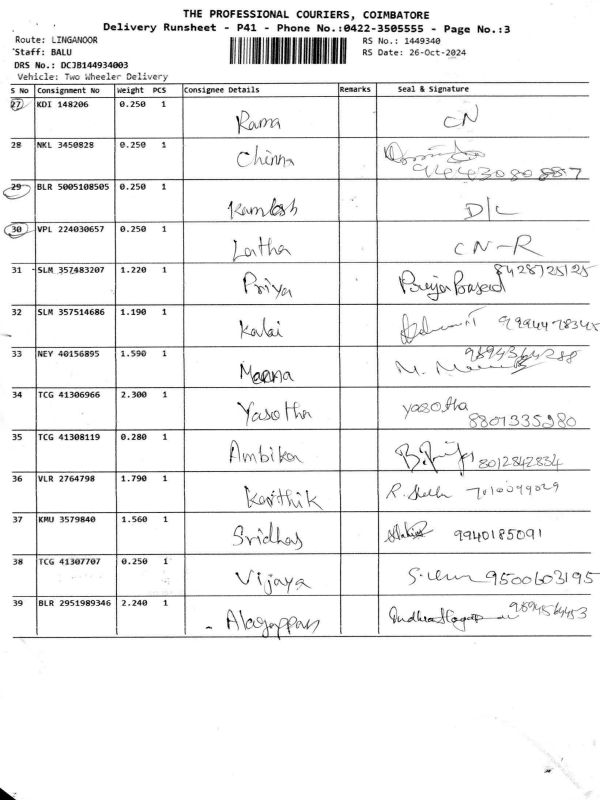 THE PROFESSIONAL COURIERS, COIMBATORE
Delivery Runsheet - P41 - Phone No.:0422-3505555 - Page No.:3
Route: LINGANOOR
RS No.: 1449340
Staff: BALU
RS Date: 26-Oct-2024
DRS No.: DCJB144934003
Vehicle: Two Wheeler Delivery
S No Consignment No Weight PCS Consignee Details Remarks Seal & Signature
27 KDI 148206 0.250 1 Rama CN
28 NKL 3450828 0.250 1 Chinna
29 BLR 5005108505 0.250 1 Kamlesh D/L
30 VPL 224030657 0.250 1 Latha CN-R
31 SLM 357483207 1.220 1 Priya 8428725125
32 SLM 357514686 1.190 1 Kalai
33 NEY 40156895 1.590 1 Meena
34 TCG 41306966 2.300 1 Yasotha yasotha 8807335280
35 TCG 41308119 0.280 1 Ambika 8012842834
36 VLR 2764798 1.790 1 Karthik 7010099029
37 KMU 3579840 1.560 1 Sridhar 9940185091
38 TCG 41307707 0.250 1 Vijaya 9500603195
39 BLR 2951989346 2.240 1 Alagappan